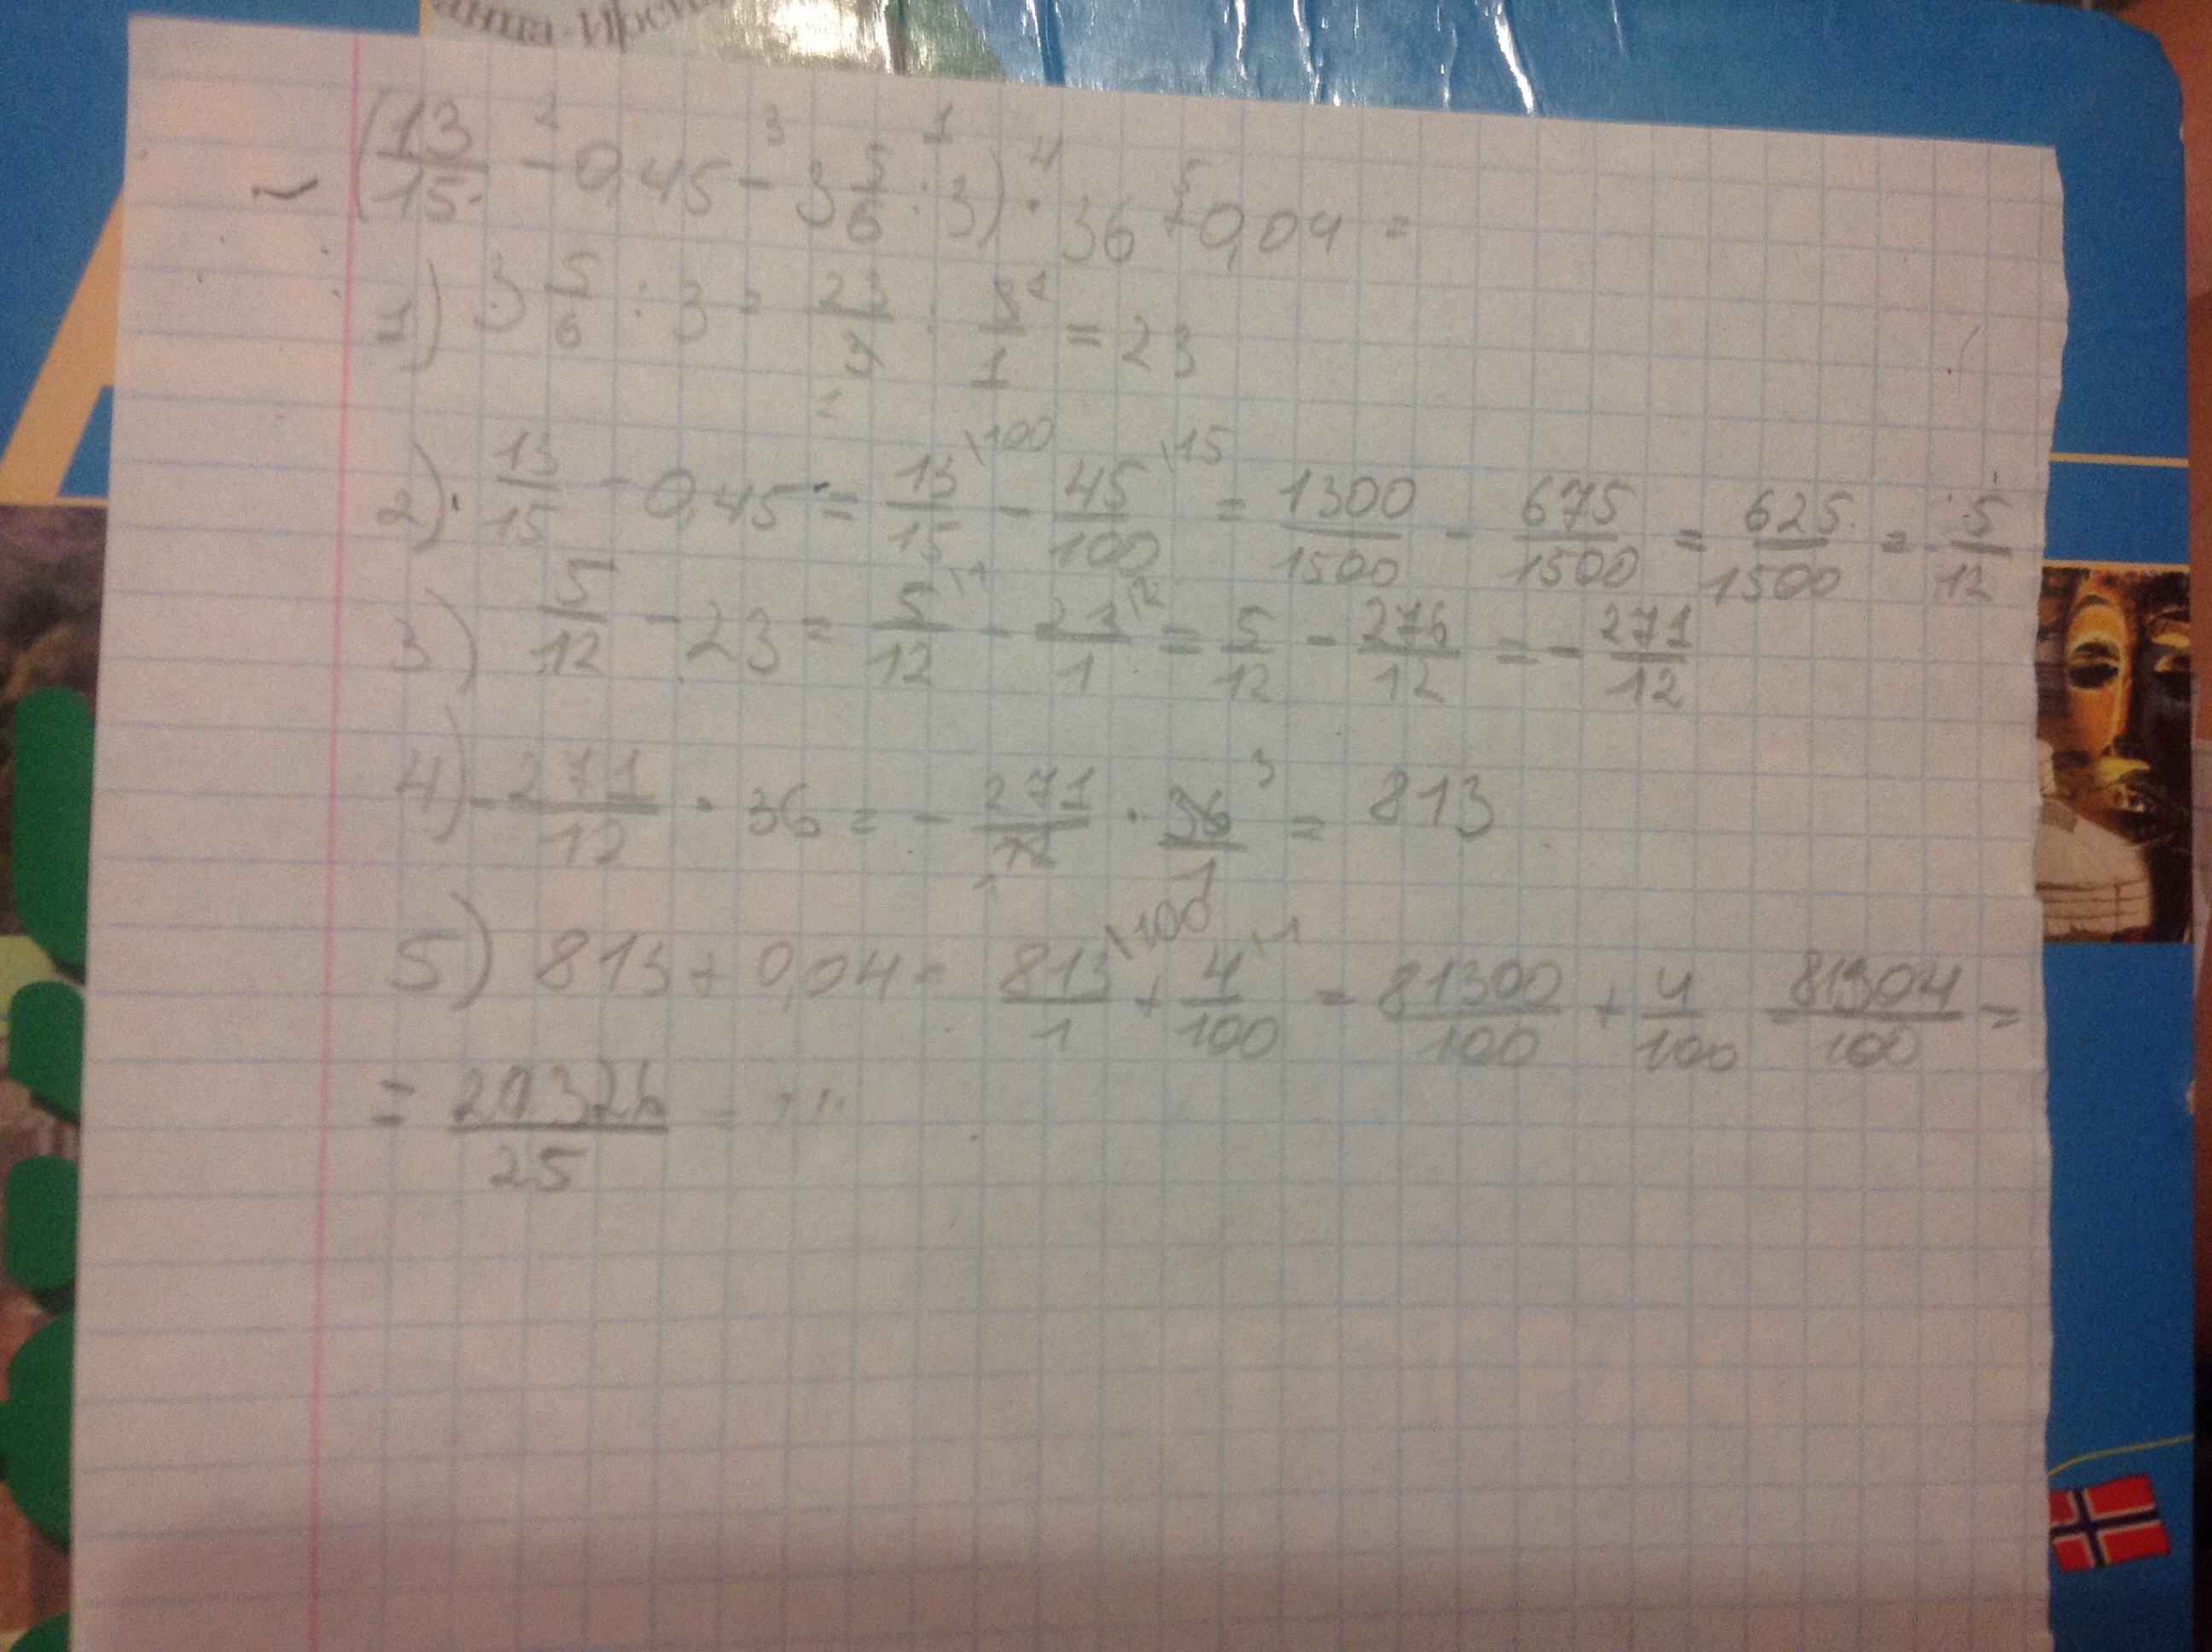 (13/15 ² - 0,45 ³ - 3 5/6 ¹ : 3) ⁴ · 36 ⁵ + 0,04 =
1) 3 5/6 : 3 = 23/3 · 3/1 = 23
2) 13/15 - 0,45 = 13/15 \100 - 45/100 \15 = 1300/1500 - 675/1500 = 625/1500 = 5/12
3) 5/12 - 23 = 5/12 \1 - 23/1 \12 = 5/12 - 276/12 = - 271/12
4) - 271/12 · 36 = - 271/12 1 · 36/1 3 = 813
5) 813 + 0,04 = 813/1 \100 + 4/100 \1 = 81300/100 + 4/100 = 81304/100 =
= 20326/25